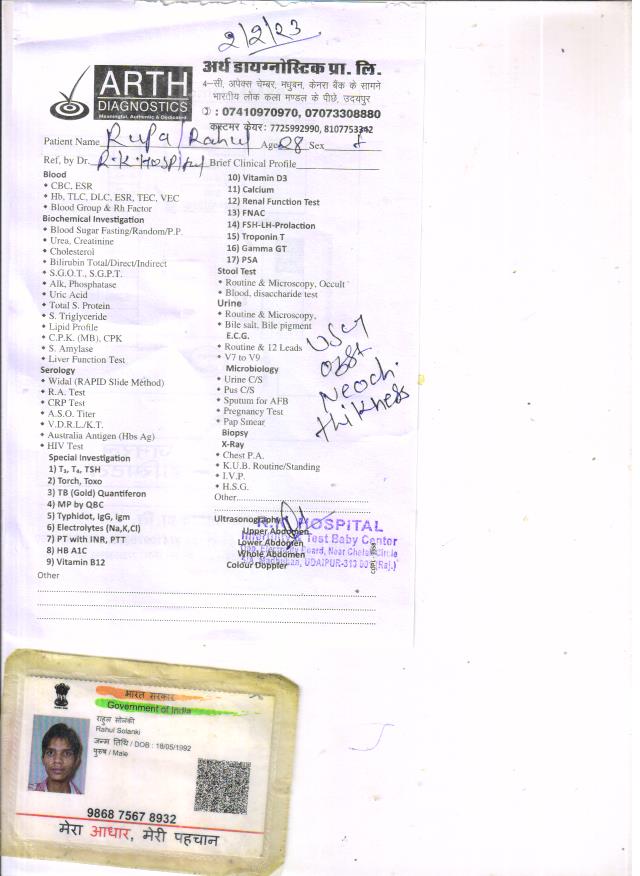 2/2/23
ARTH
DIAGNOSTICS
Meaningful, Authentic & Dedicated
अर्थ डायग्नोस्टिक प्रा. लि.
4-सी, अपेक्स चेम्बर, मधुबन, केनरा बैंक के सामने
भारतीय लोक कला मण्डल के पीछे, उदयपुर
: 07410970970, 07073308880
कस्टमर केयर: 7725992990, 8107753342
Patient Name Rupa/Rahul Age 28 Sex f
Ref, by Dr. R.K. HOSPital Brief Clinical Profile
Blood
• CBC, ESR
• Hb, TLC, DLC, ESR, TEC, VEC
• Blood Group & Rh Factor
Biochemical Investigation
• Blood Sugar Fasting/Random/P.P.
• Urea, Creatinine
• Cholesterol
• Bilirubin Total/Direct/Indirect
• S.G.O.T., S.G.P.T.
• Alk, Phosphatase
• Uric Acid
• Total S. Protein
• S. Triglyceride
• Lipid Profile
• C.P.K. (MB), CPK
• S. Amylase
• Liver Function Test
Serology
• Widal (RAPID Slide Method)
• R.A. Test
• CRP Test
• A.S.O. Titer
• V.D.R.L./K.T.
• Australia Antigen (Hbs Ag)
• HIV Test
Special Investigation
1) T₃, T₄, TSH
2) Torch, Toxo
3) TB (Gold) Quantiferon
4) MP by QBC
5) Typhidot, IgG, Igm
6) Electrolytes (Na,K,Cl)
7) PT with INR, PTT
8) HB A1C
9) Vitamin B12
10) Vitamin D3
11) Calcium
12) Renal Function Test
13) FNAC
14) FSH-LH-Prolaction
15) Troponin T
16) Gamma GT
17) PSA
Stool Test
• Routine & Microscopy, Occult
• Blood, disaccharide test
Urine
• Routine & Microscopy,
• Bile salt, Bile pigment
E.C.G.
• Routine & 12 Leads
• V7 to V9
Microbiology
• Urine C/S
• Pus C/S
• Sputum for AFB
• Pregnancy Test
• Pap Smear
Biopsy
X-Ray
• Chest P.A.
• K.U.B. Routine/Standing
• I.V.P.
• H.S.G.
Other
Ultrasonography
Upper Abdomen
Lower Abdomen
Whole Abdomen
Colour Doppler
USG
obst
Neoch.
thikness
R.K. HOSPiTAL
Infertility & Test Baby Center
Board, Near Chetak Circle
Madhuban, UDAIPUR-313 001 (Raj.)
Other
भारत सरकार
Government of India
राहुल सोलंकी
Rahul Solanki
जन्म तिथि / DOB : 18/05/1992
पुरुष / Male
9868 7567 8932
मेरा आधार, मेरी पहचान